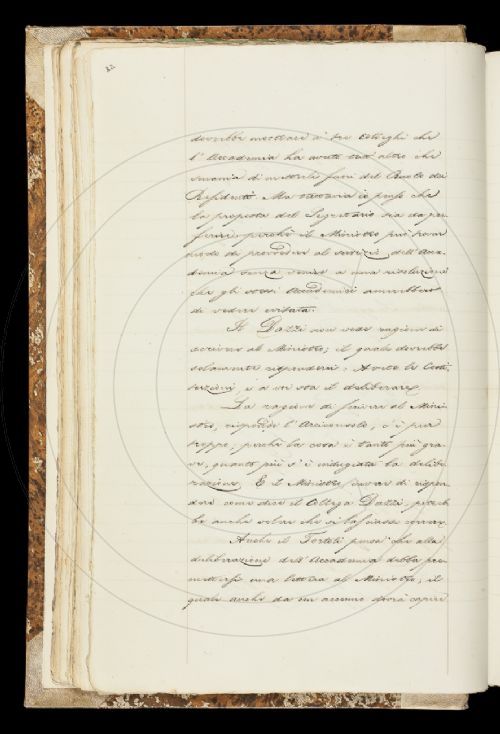 dovrebbe mostrare a' tre Colleghi che
l'Accademia ha avuto tutt'altro che
smania di metterli fuori del Ruolo dei
Residenti. Ma tuttavia io penso che
la proposta del Segretario sia da pre-
ferirsi perchè il Ministro può trovar
modo di provvedere al servizio dell'Acca-
demia senza venire a una risoluzione
che gli stessi Accademici amerebbero
di vedere evitata.
Il Dazzi non vede ragione di
scrivere al Ministro; il quale dovrebbe
solamente rispondere: Avete le Costi-
tuzioni, e a voi sta il deliberare.
La ragione di scrivere al Mini-
stro, risponde l'Arciconsolo, c'è pur
troppo; perchè la cosa è tanto più gra-
ve, quanto più s'è indugiata la delibe-
razione. E il Ministro invece di rispon-
dere come dice il Collega Dazzi, potreb-
be anche volere che si lasciasse correre.
Anche il Tortoli pensa che alla
deliberazione dell'Accademia debba pre-
mettersi una lettera al Ministro, il
quale anche da un accenno dovrà capire